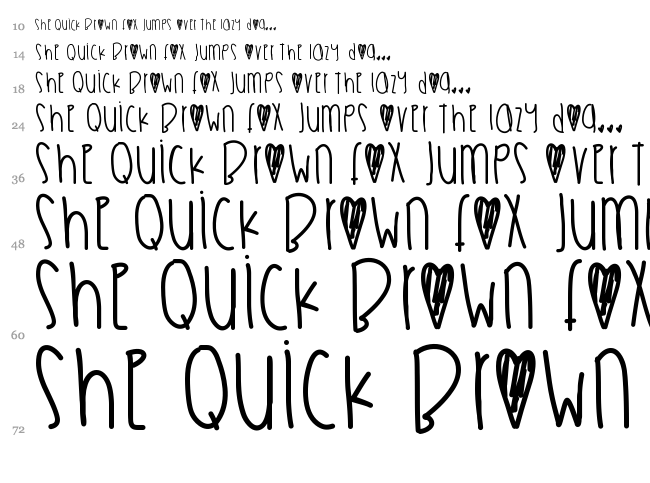 10 She Quick Brown fox jumps over the lazy dog...
14 She Quick Brown fox jumps over the lazy dog...
18 She Quick Brown fox jumps over the lazy dog...
24 She Quick Brown fox jumps over the lazy dog...
36 She Quick Brown fox jumps over t
48 She Quick Brown fox jum
60 She Quick Brown fox
72 She Quick Brown